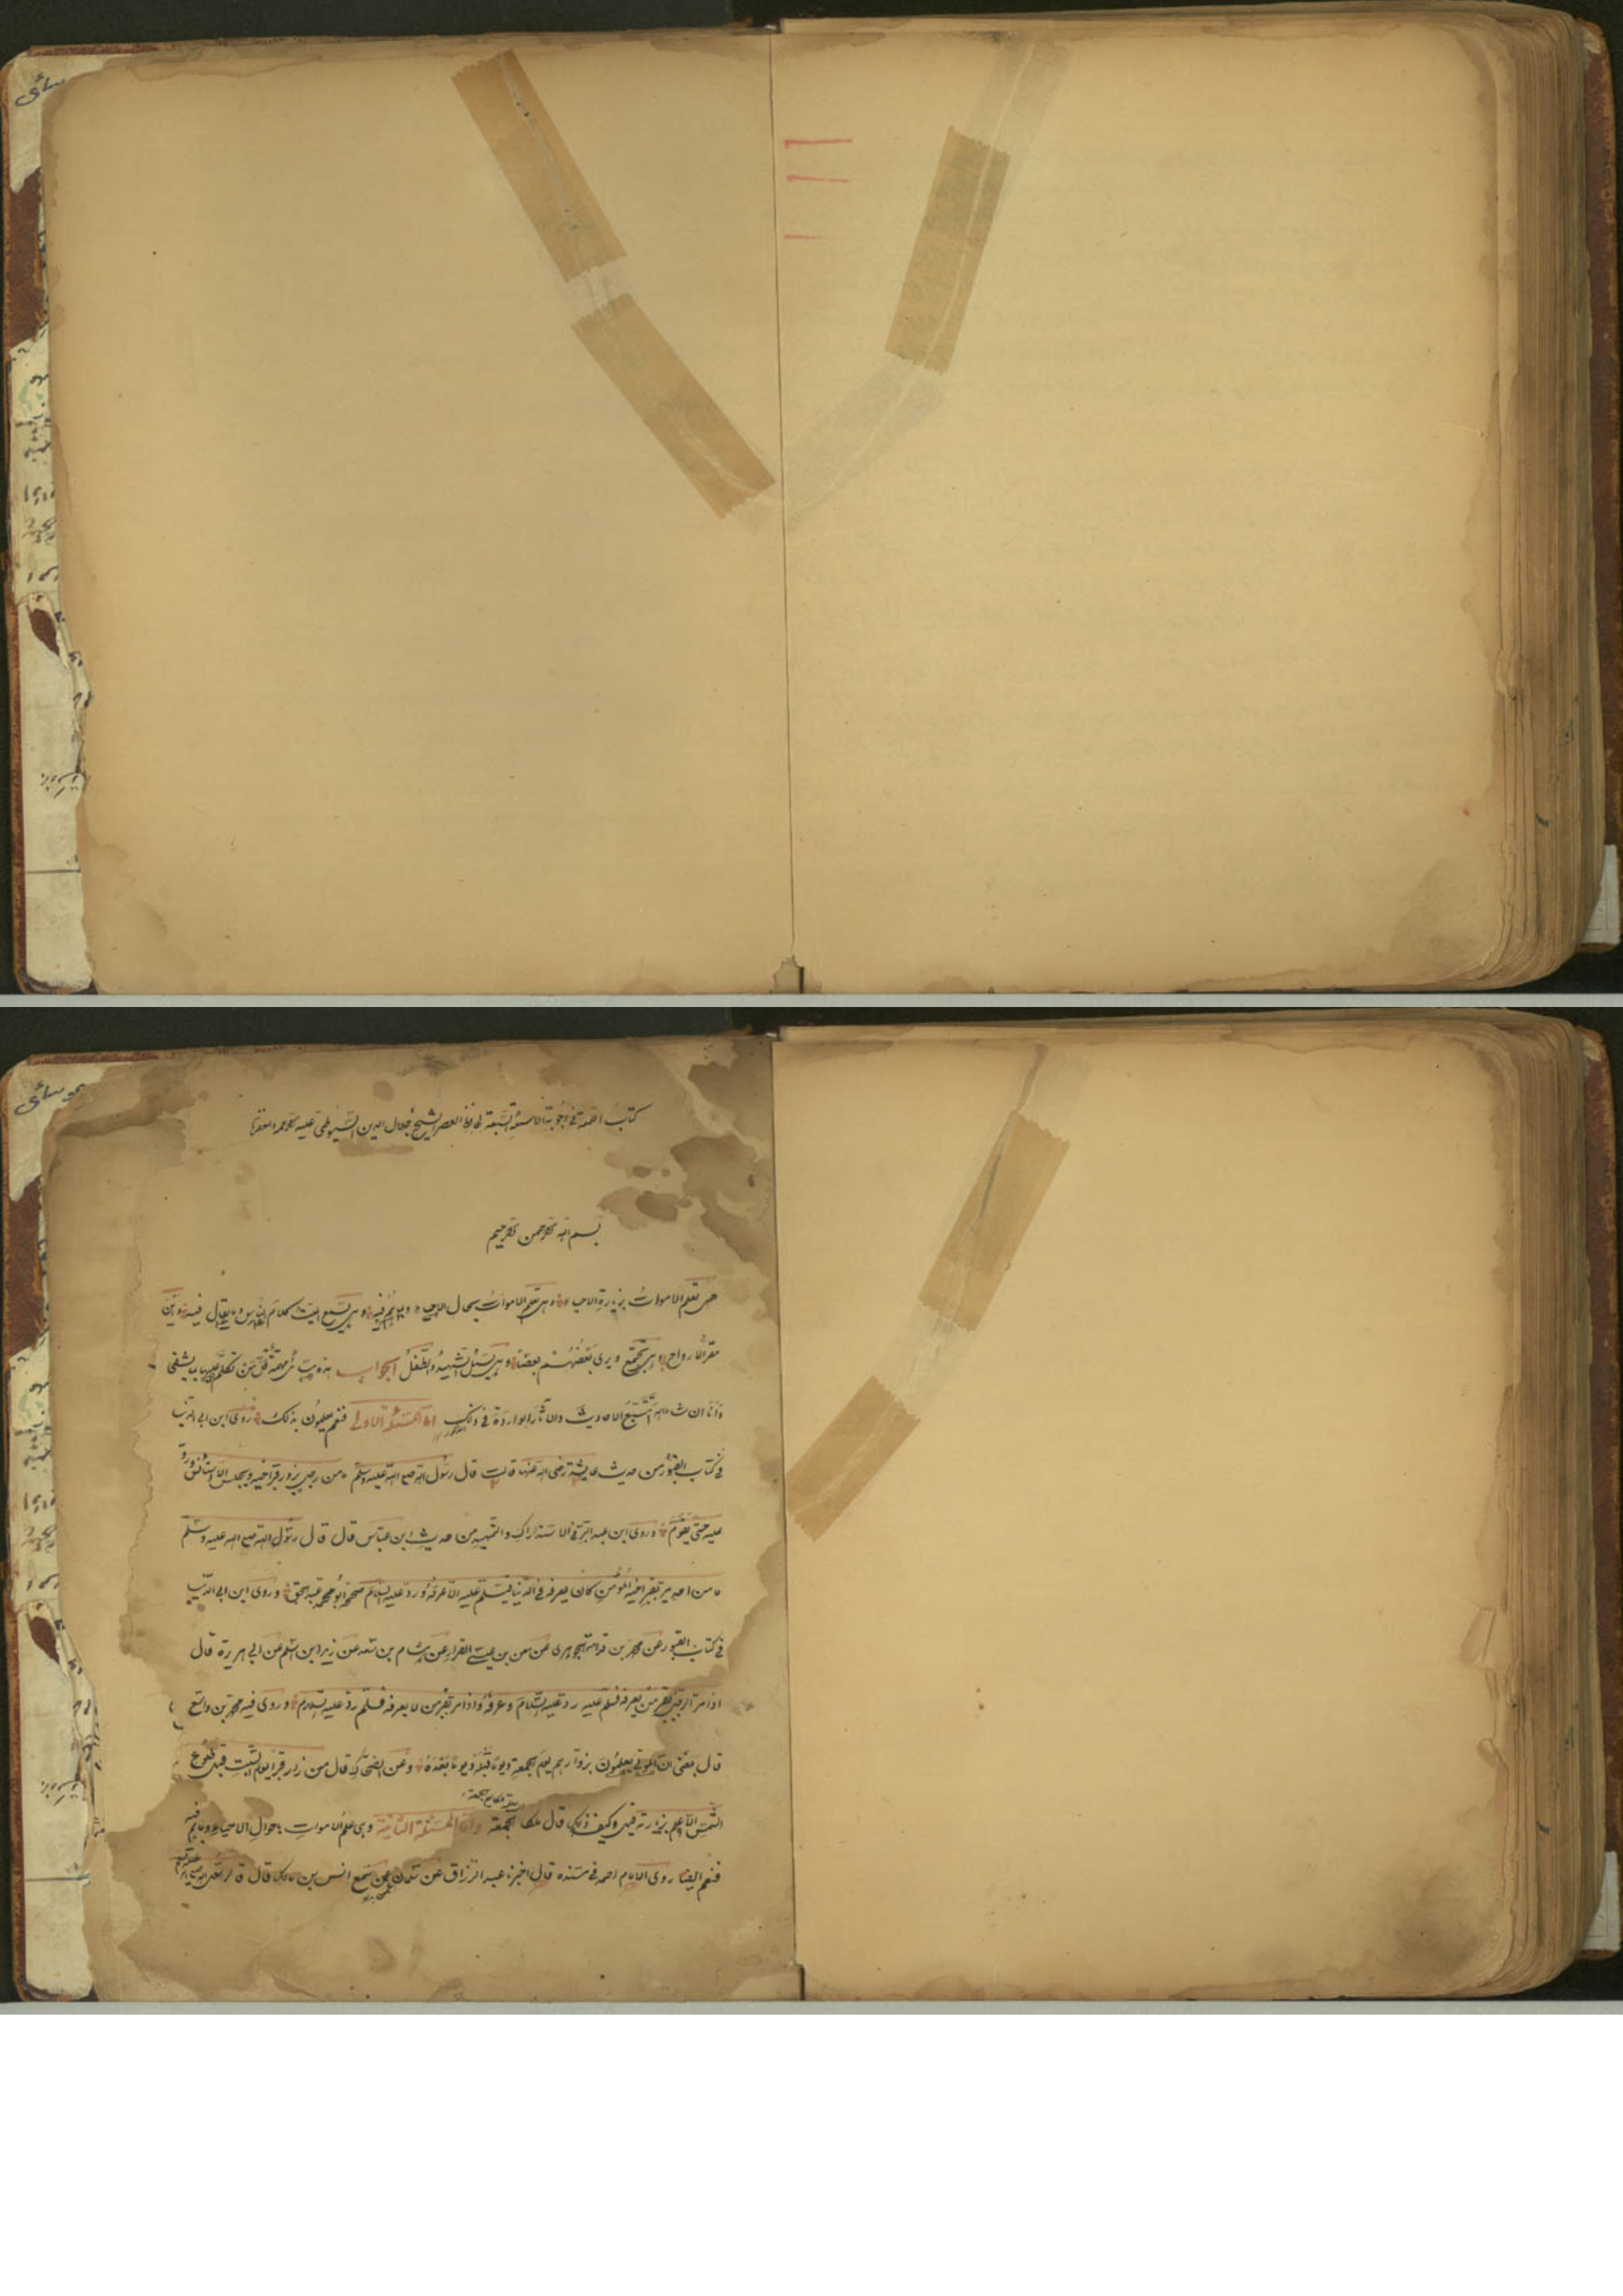 كتاب اللمعة في أجوبة الاسئلة السبعة لحافظ العصر الشيخ جلال الدين السيوطي عليه
بسم الله الرحمن الرحيم
هل تعلم الاموات بزيارة الاحياء وهل تعلم الاموات بحال الاحياء وما هم فيه وهل يسمع الميت كلام الناس وما يقال فيه واين
مقر الأرواح وهل تجتمع ويرى بعضهم بعضا وهل يسئل الشهيد والطفل الجواب هذه مسائل مهمة قل من تكلم عليها بما يشفى
وأنا ان شاء الله أتتبع الاحاديث والآثار الواردة في ذلك اما المسئلة الاولى فنعم يعلمون بذلك روى ابن ابي الدنيا
في كتاب القبور من حديث عايشة رضى الله عنها قالت قال رسول الله صلى الله عليه وسلم ما من رجل يزور قبر أخيه ويجلس الا استأنس ورد
عليه حتى يقوم وروى ابن عبد البر في الاستذكار والتمهيد من حديث ابن عباس قال قال رسول الله صلى الله عليه وسلم
ما من احد يمر بقبر اخيه المؤمن كان يعرفه في الدنيا فيسلم عليه الا عرفه ورد عليه السلام صححه أبو محمد عبد الحق وروى ابن ابي الدنيا
في كتاب القبور عن محمد بن قدامة الجوهرى عن معن بن عيسى القزاز عن هشام بن سعد عن زيد ابن اسلم عن ابي هريرة قال
اذا مر الرجل بقبر من يعرفه فسلم عليه رد عليه السلام وعرفه واذا مر بقبر من لا يعرفه فسلم رد عليه السلام وروى فيه محمد بن واسع
قال بلغني ان الموتى يعلمون بزوارهم يوم الجمعة ويوما قبله ويوما بعده وعن الضحاك قال من زار قبرا يوم السبت قبل طلوع
الشمس الا علم بزيارته قيل وكيف ذلك قال لمكان الجمعة واما المسئلة الثانية وهي علم الاموات باحوال الاحياء وما هم فيه
فنعم ايضا روى الامام احمد في مسنده قال اخبرنا عبد الرزاق عن سفيان عمن سمع انس بن مالك قال قال رسول الله صلى الله عليه وسلم